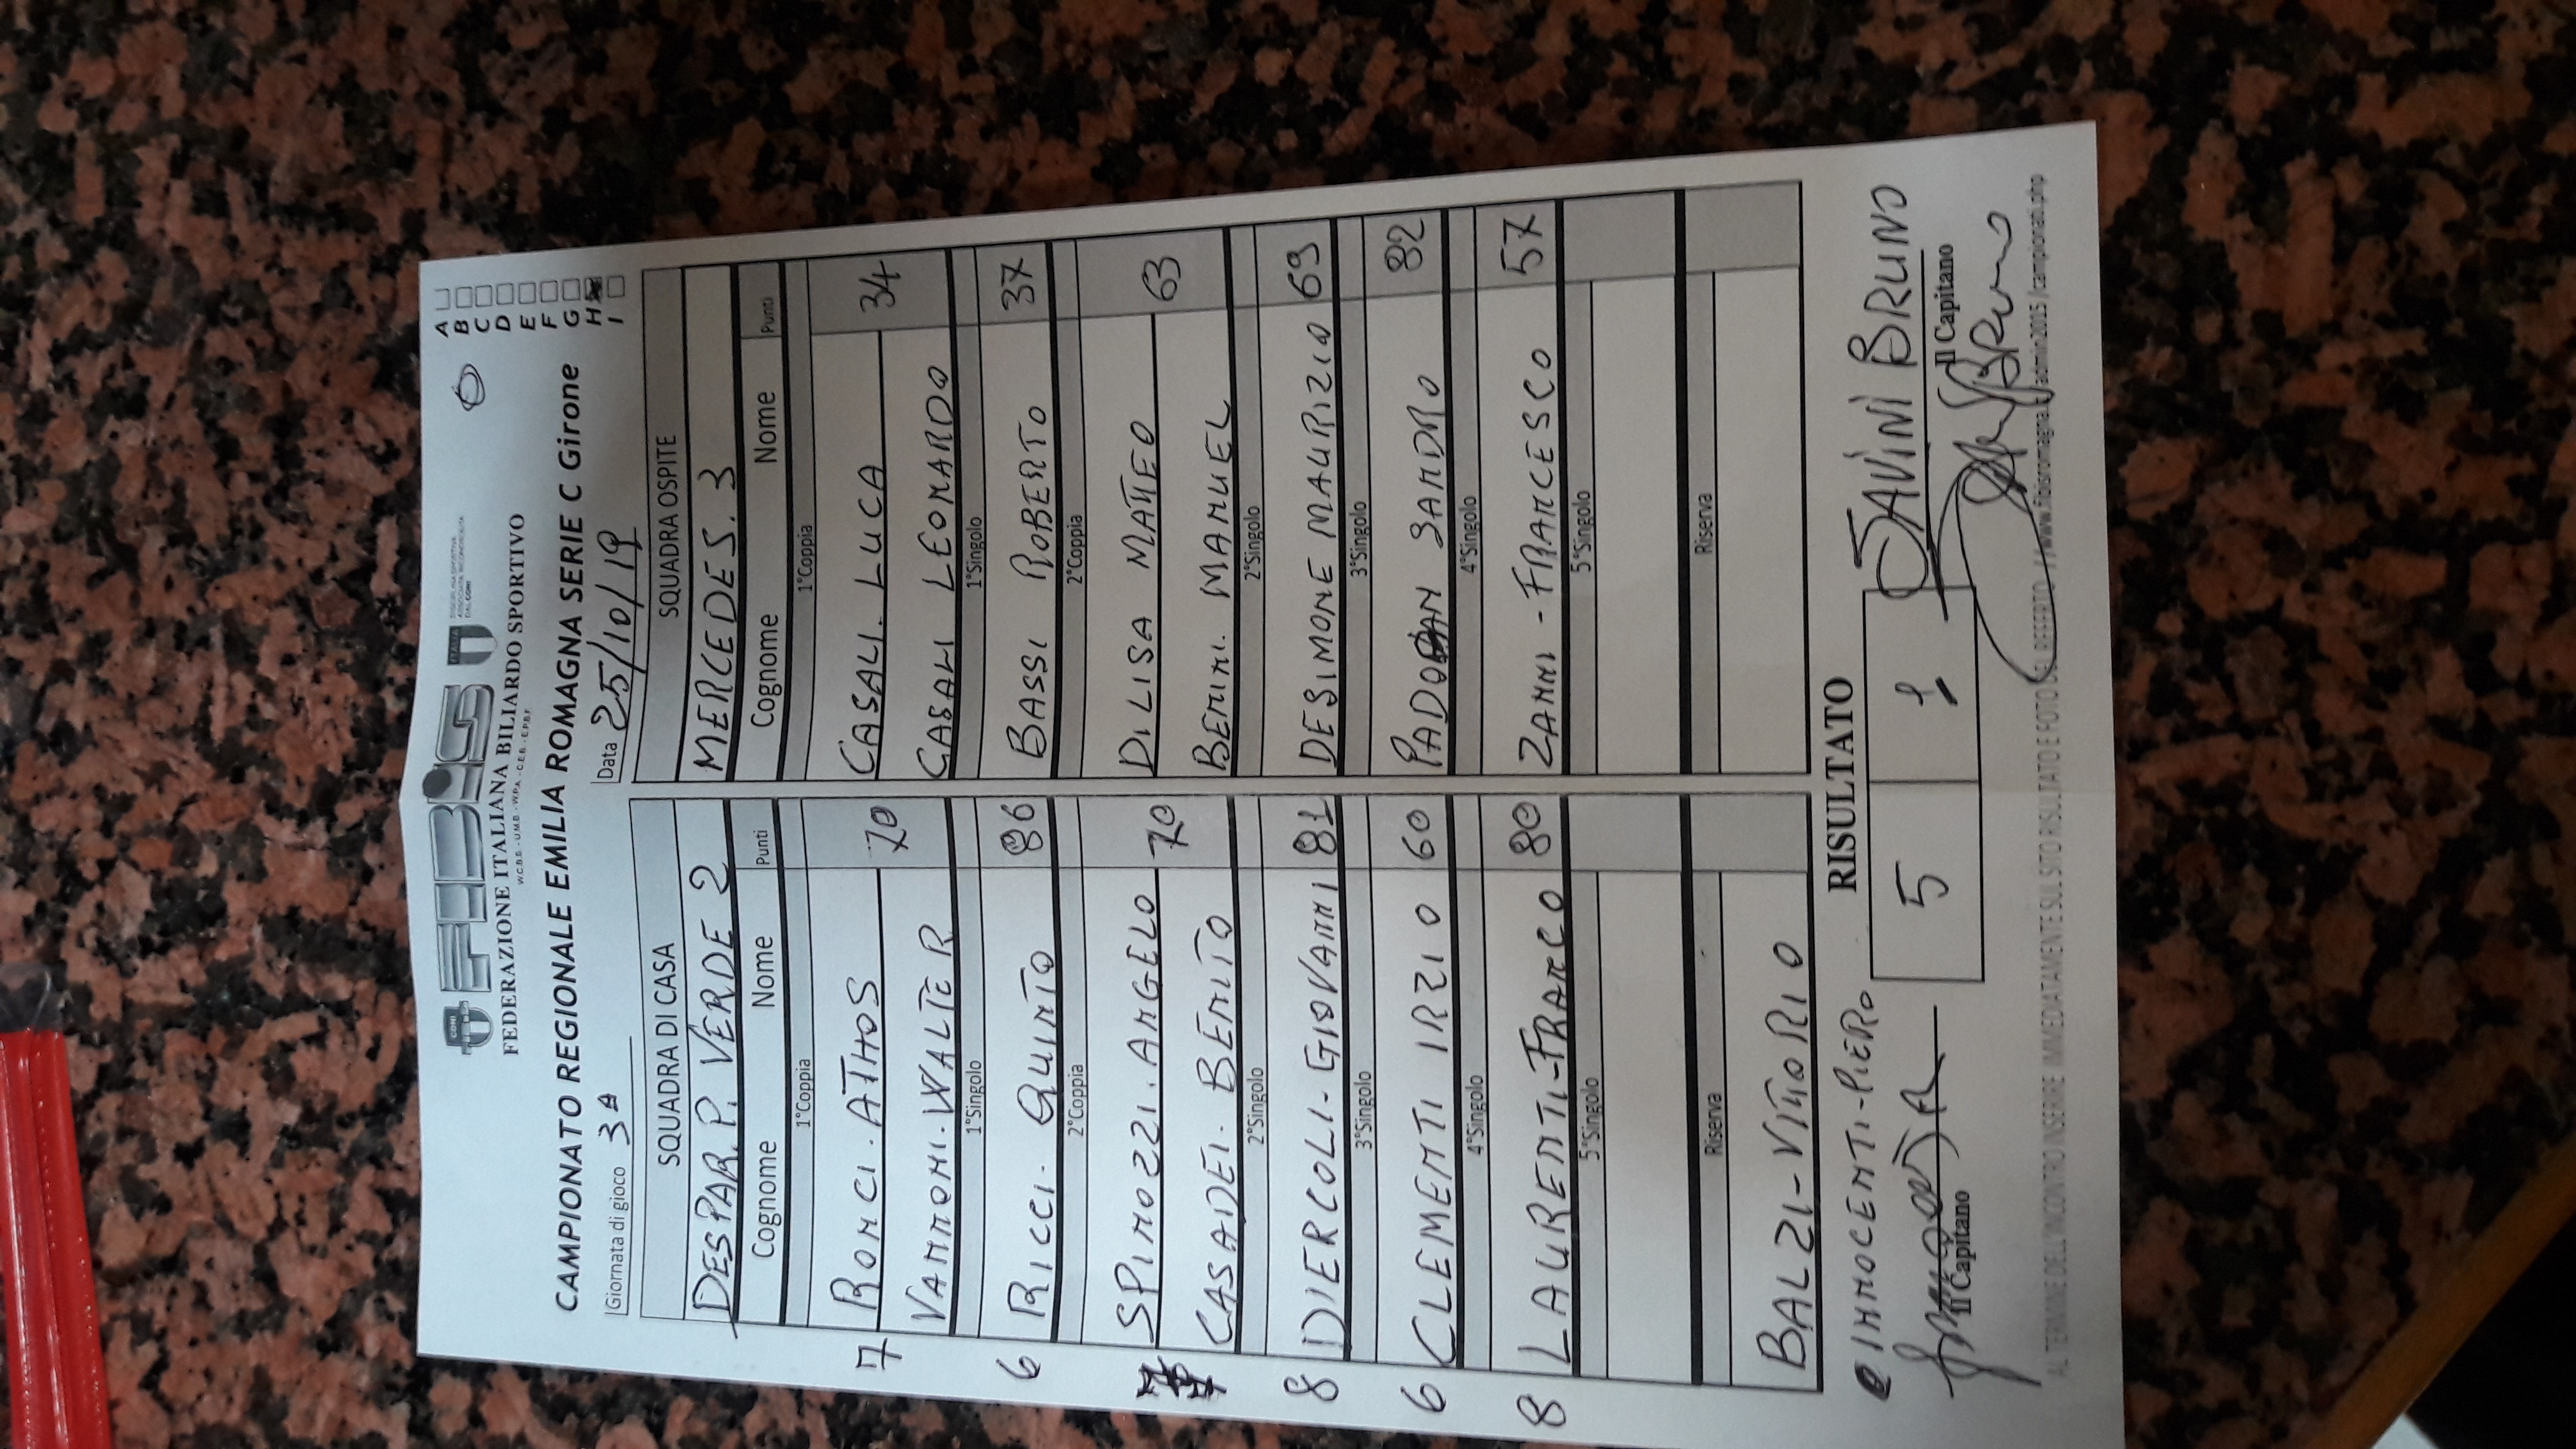 FIBiS
CONI
ITALIA
DISCIPLINA SPORTIVA ASSOCIATA RICONOSCIUTA DAL CONI
FEDERAZIONE ITALIANA BILIARDO SPORTIVO
W.C.B.S. - U.M.B. - W.P.A. - C.E.B. - E.P.B.F.
CAMPIONATO REGIONALE EMILIA ROMAGNA SERIE C Girone
A
B
C
D
E
F
G
H
I
Giornata di gioco 3A
Data 25/10/19
SQUADRA DI CASA SQUADRA OSPITE
DESPAR. P. VERDE 2 MERCEDES. 3
Cognome Nome Punti Cognome Nome Punti
1°Coppia 1°Coppia
7 RONCI. ATHOS 70 CASALI. LUCA 34
VANNONI. WALTER CASALI LEONARDO
1°Singolo 1°Singolo
6 RICCI. QUINTO 86 BASSI ROBERTO 37
2°Coppia 2°Coppia
SPINOZZI. ANGELO 70 DILISA MATTEO 63
CASADEI. BENITO BENINI. MANUEL
2°Singolo 2°Singolo
8 DIERCOLI - GIOVANNI 81 DESIMONE MAURIZIO 69
3°Singolo 3°Singolo
6 CLEMENTI IRZIO 60 PADOAN SANDRO 82
4°Singolo 4°Singolo
8 LAURENTI - FRANCO 80 ZANNI - FRANCESCO 57
5°Singolo 5°Singolo
Riserva Riserva
BALZI - VITTORIO
RISULTATO
INNOCENTI - PIERO 5 1 SAVINI BRUNO
Il Capitano Il Capitano
AL TERMINE DELL'INCONTRO INSERIRE IMMEDIATAMENTE SUL SITO RISULTATO E FOTO DEL REFERTO